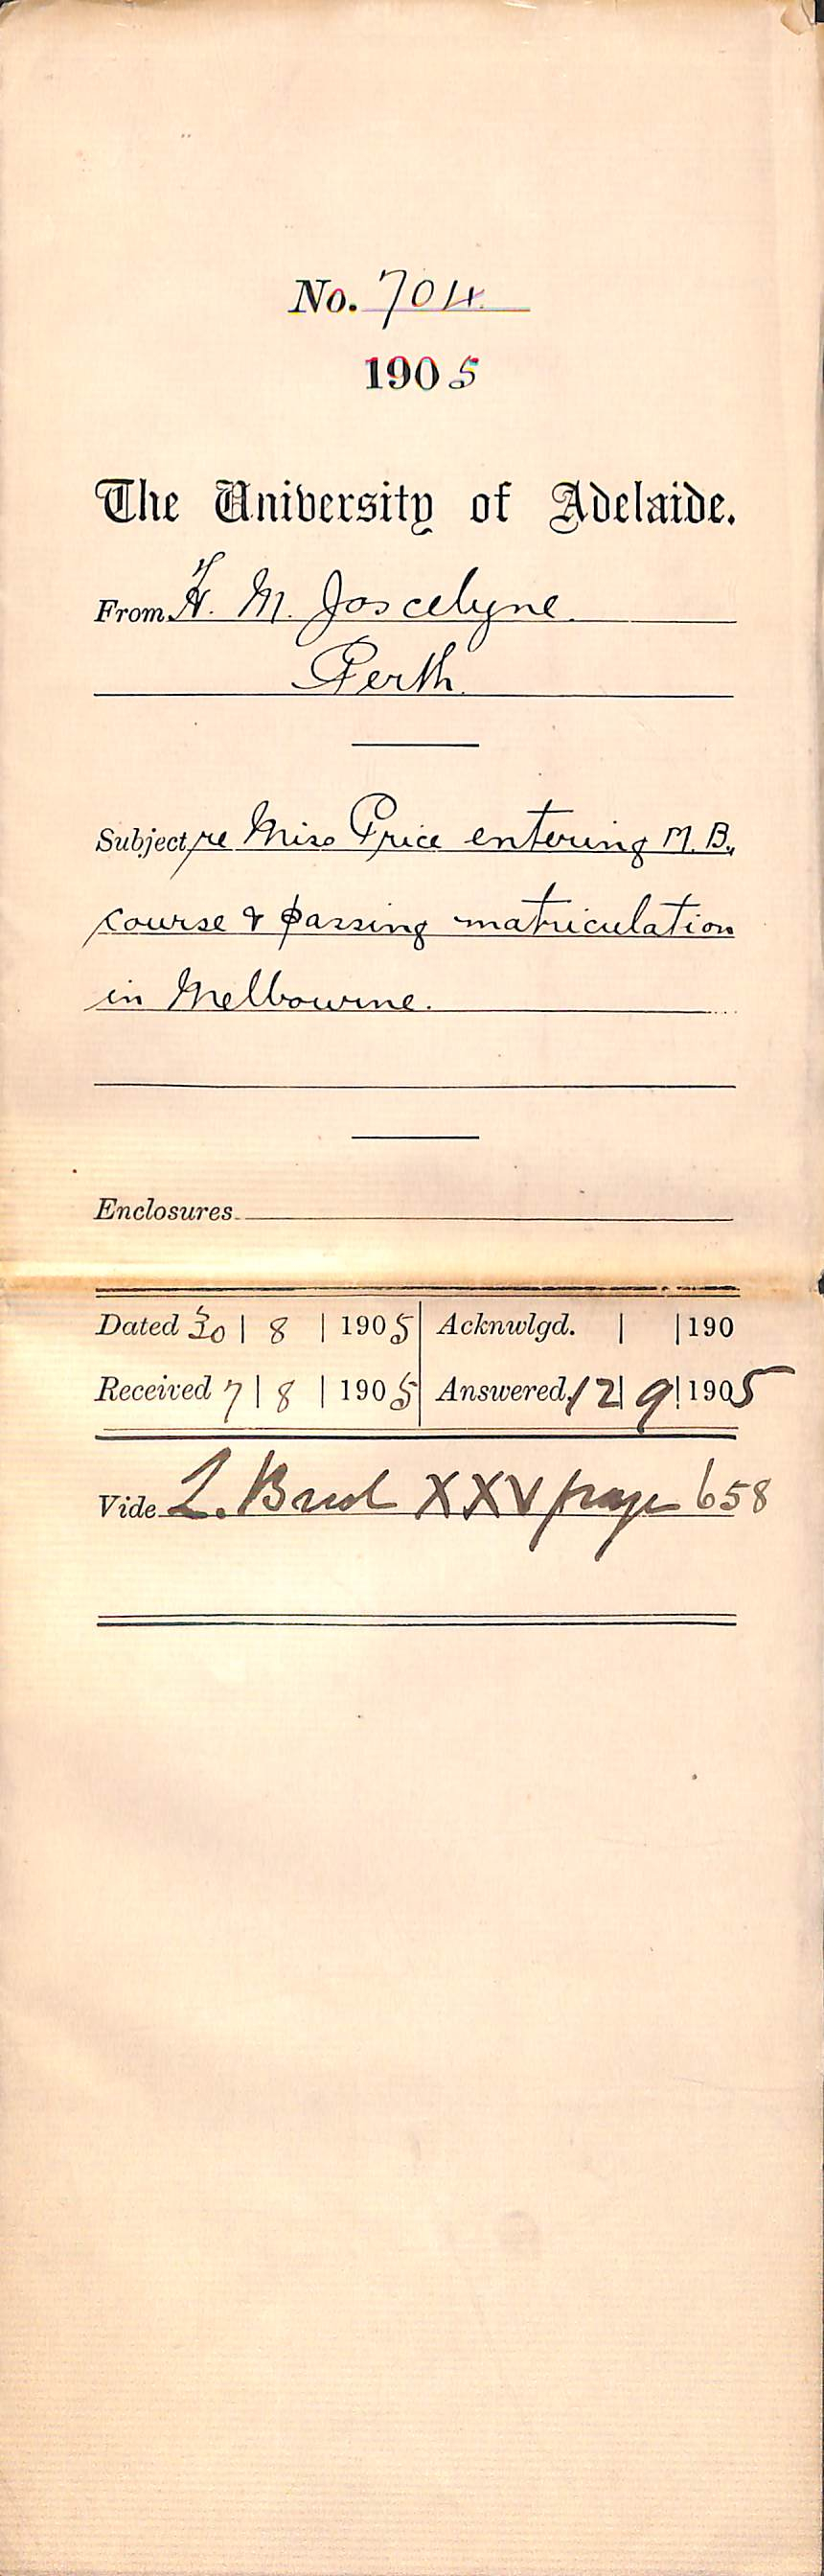 No. 704
1905
The University of Adelaide.
From H. M. Joscelyne
Perth.
Subject re Miss Price entering M. B.
course & passing matriculation
in Melbourne.
Enclosures
Dated 30 | 8 | 1905 Acknwlgd. | | 190
Received 7 | 8 | 1905 Answered 12 | 9 | 1905
Vide L. XXV page 658